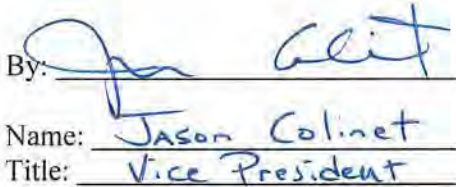 By:
Name: Jason Colinet
Title: Vice President